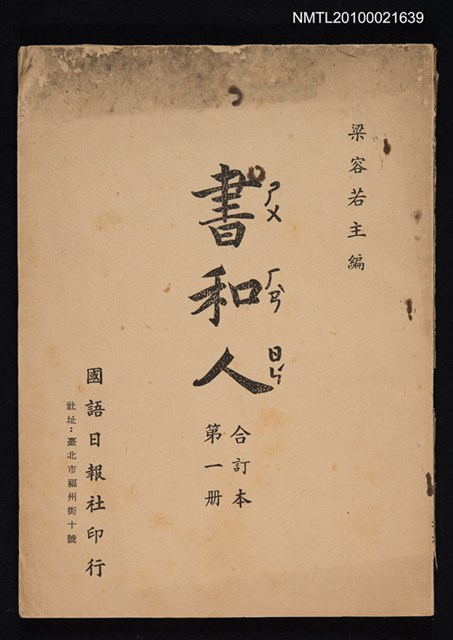 NMTL20100021639
梁容若主編
書和人
ㄕㄨ ㄏㄢˋ ㄖㄣˊ
合訂本
第一册
國語日報社印行
社址：臺北市福州街十號